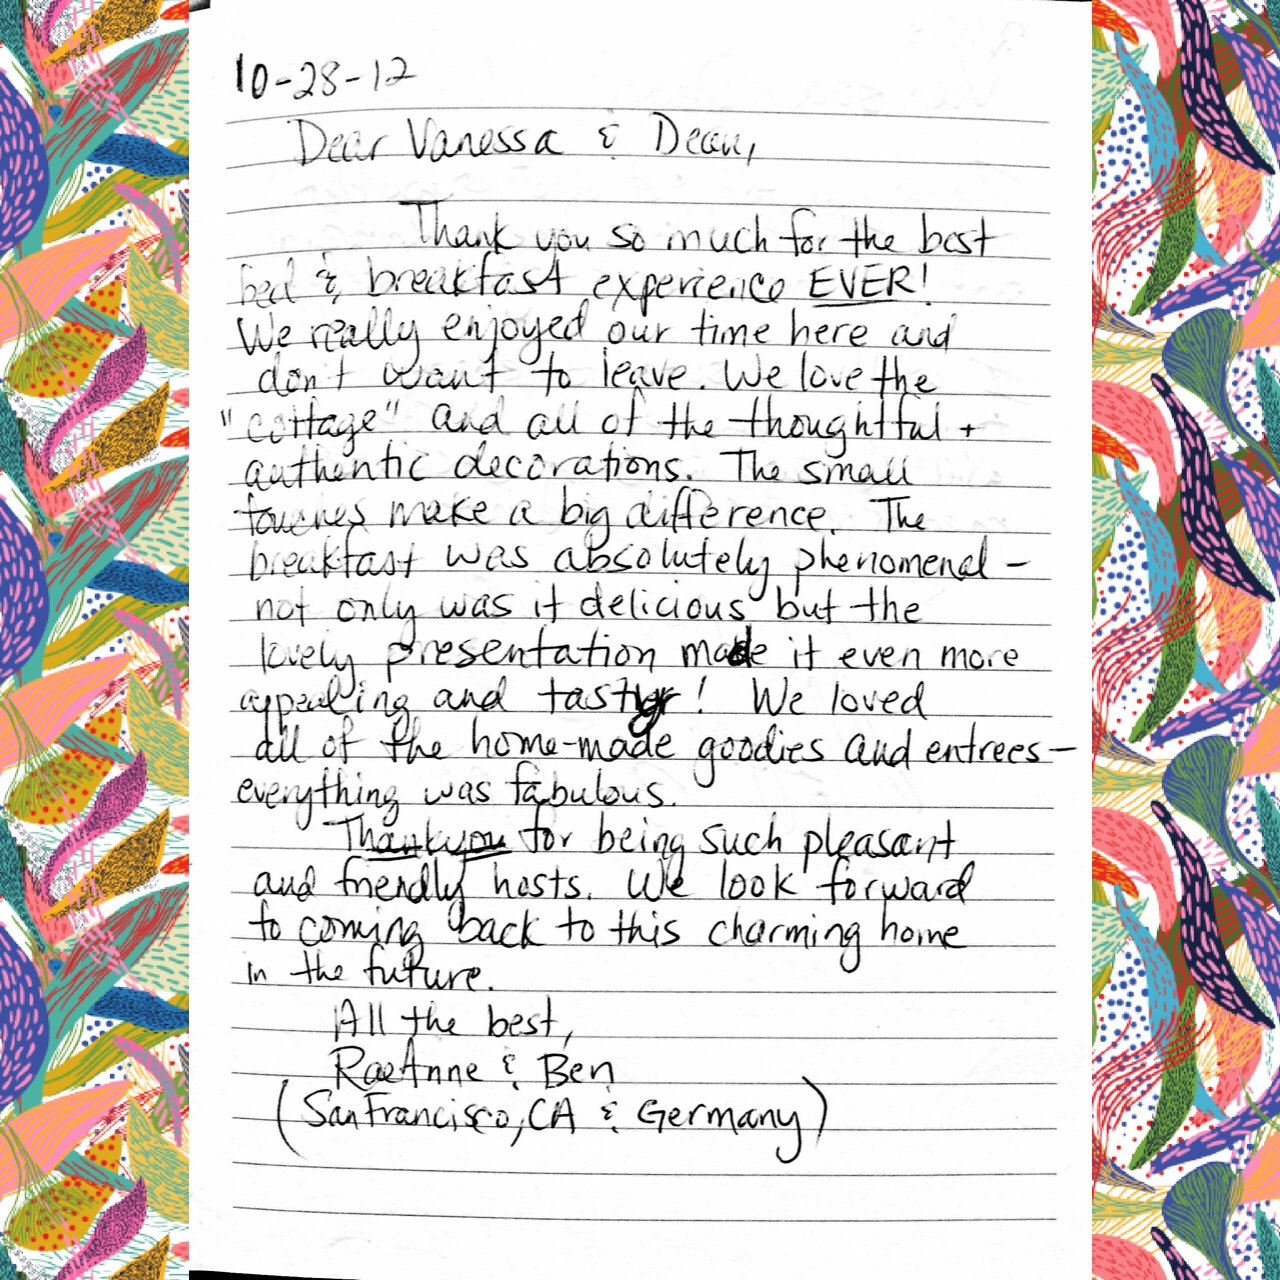 10-28-12
Dear Vanessa & Dean,
Thank you so much for the best
bed & breakfast experience EVER!
We really enjoyed our time here and
don't want to leave. We love the
"cottage" and all of the thoughtful +
authentic decorations. The small
touches make a big difference. The
breakfast was absolutely phenomenal -
not only was it delicious but the
lovely presentation made it even more
appealing and tasty! We loved
all of the home-made goodies and entrees-
everything was fabulous.
Thank you for being such pleasant
and friendly hosts. We look forward
to coming back to this charming home
in the future.
All the best,
RaeAnne & Ben
(San Francisco, CA & Germany)